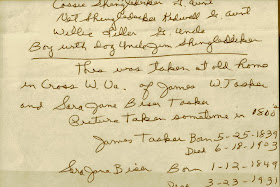 Cassie Shingledecker G. aunt
Nat Shingledecker Kidwell G. aunt
Willie Piller G. Uncle
Boy with dog Uncle Jim Shingledecker
This was taken at old home
in Cross W. Va. of James W Tasker
and Sara Jane Biser Tasker
Picture taken sometime in 1800
James Tasker Born 5-25-1839
Died 6-18-1903
Sara Jane Biser Born 1-12-1849
Died 3-23-1931